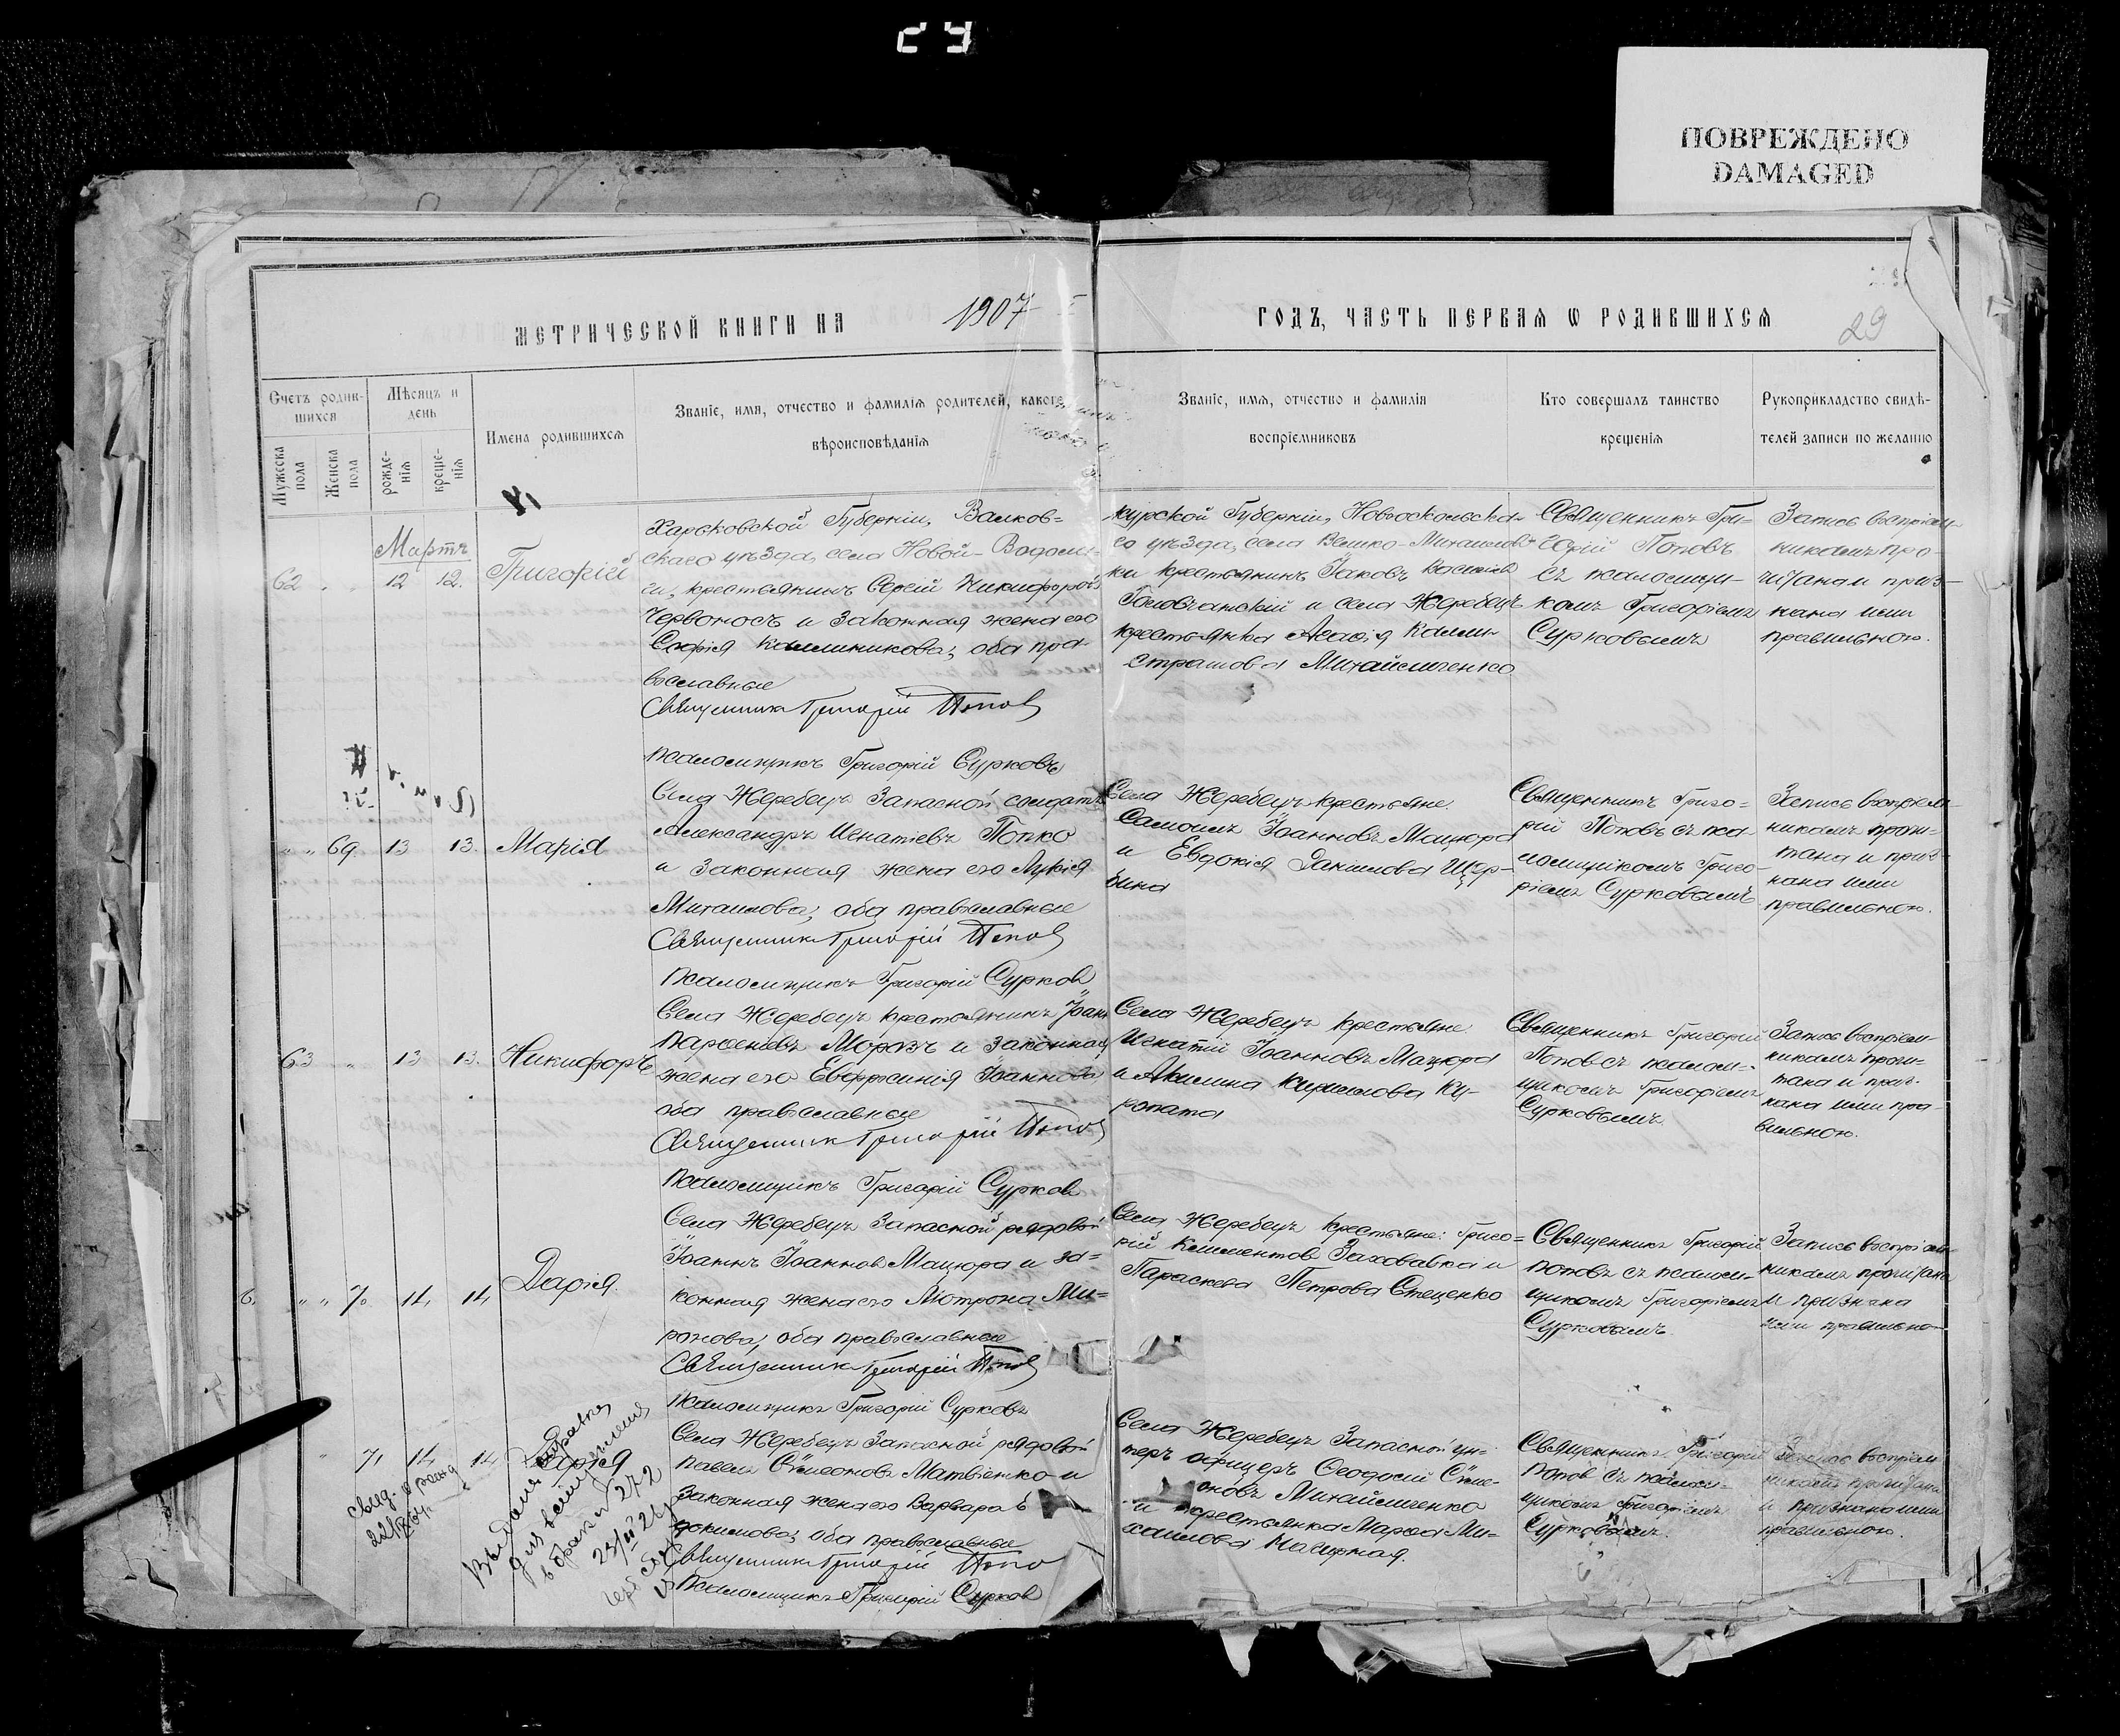 29
ПОВРЕЖДЕНО
DAMAGED
МЕТРИЧЕСКОЙ КНИГИ НА 1907
ГОДЪ, ЧАСТЬ ПЕРВАЯ Ѡ РОДИВШИХСЯ
29
Счетъ родив-
шихся
Мужеска
пола
Женска
пола
Мѣсяцъ и
день
рожде-
нія
креще-
нія
Имена родившихся
Званіе, имя, отчество и фамилія родителей, какого
вѣроисповѣданія
Званіе, имя, отчество и фамилія
воспріемниковъ
Кто совершалъ таинство
крещенія
Рукоприкладство свидѣ-
телей записи по желанію
Мартъ
62 12 12. Григорій
Харьковской Губерніи, Валков-
скаго уѣзда, села Новой-Водола-
ги, крестьянинъ Сергій Никифоровъ
Червоносъ и законная жена его
Софія Каллиникова; оба пра-
вославные
Священникъ Григорій Поповъ
Псаломщикъ Григорій Сурковъ
Курской Губерніи, Новооскольска-
го уѣзда, села Велико-Михаиловки
крестьянинъ Іаковъ
и села Жеребецъ
крестьянка Агаѳія Калли-
стратова Михайличенко
Священникъ Гри-
горій Поповъ
съ псаломщи-
комъ Григоріемъ
Сурковымъ
Запись воспріем-
никамъ про-
читана и приз-
нана ими
правильною.
69. 13 13. Марія
Села Жеребецъ запасной солдатъ
Александръ Игнатіевъ Попко
и законная жена его Лукія
Михаилова; оба православные
Священникъ Григорій Поповъ
Псаломщикъ Григорій Сурковъ
Села Жеребецъ крестьяне:
Самоилъ Іоанновъ Мацюра
и Евдокія Даніилова Щер-
бина
Священникъ Григо-
рій Поповъ съ пса-
ломщикомъ Григо-
ріемъ Сурковымъ
Запись воспріем-
никамъ прочи-
тана и приз-
нана ими
правильною.
63 13 13. Никифоръ
Села Жеребецъ крестьянинъ Іоаннъ
Парѳеніевъ Морозъ и законная
жена его Евфросинія Іоаннова
оба православные
Священникъ Григорій Поповъ
Псаломщикъ Григорій Сурковъ
Села Жеребецъ крестьяне:
Игнатій Іоанновъ Мацюра
и Акилина Кириллова Ку-
ропата
Священникъ Григорій
Поповъ съ псалом-
щикомъ Григоріемъ
Сурковымъ.
Запись воспріем-
никамъ прочи-
тана и приз-
нана ими пра-
вильною.
70 14 14 Дарія.
Села Жеребецъ запасной рядовой
Іоаннъ Іоанновъ Мацюра и за-
конная жена его Мотрона Ми-
ронова; оба православные
Священникъ Григорій Поповъ
Псаломщикъ Григорій Сурковъ
Села Жеребецъ крестьяне: Григо-
рій Климентовъ Заховавка и
Параскева Петрова Стеценко
Священникъ Григорій
Поповъ съ псалом-
щикомъ Григоріемъ
Сурковымъ.
Запись воспріем-
никамъ прочитана
и признана
ими правильно
71 14 14 Дарія
Села Жеребецъ запасной рядовой
Павелъ Сѵмеоновъ Матвіенко и
законная жена его Варвара Е
докимова; оба православные
Священникъ Григорій Попо
Псаломщикъ Григорій Сурков
Села Жеребецъ запасной ун-
теръ офицеръ Ѳеодосій Сѵме-
оновъ Михайличенко
и крестьянка Марѳа Ми-
хаилова
Священникъ Григорій
Поповъ съ псалом-
щикомъ Григоріемъ
Сурковымъ.
Запись воспріем
никамъ прочитана
и признана ими
правильною.
Выдана справка
для вступления
в брак № 272